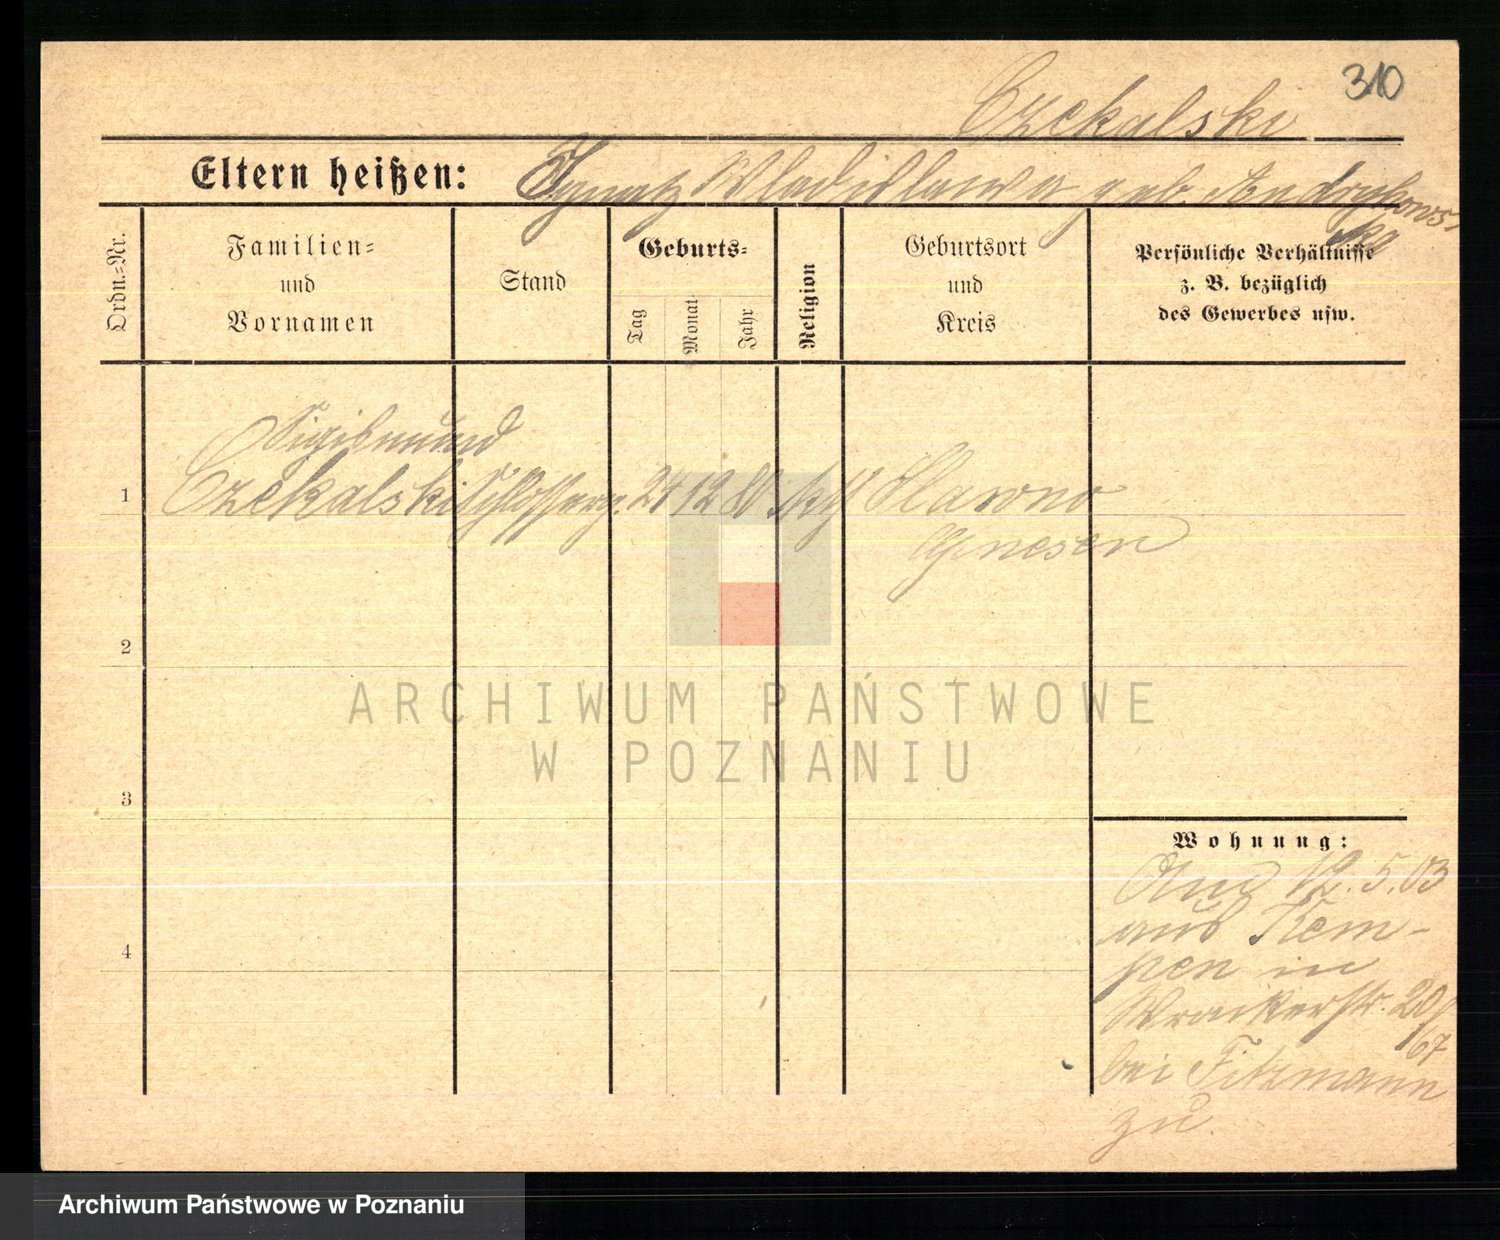 310
Czekalski
Eltern heißen: Ignatz Wladislawa geb. Andrykows-
ka
Ordn.=Nr.
Familien=
und
Vornamen
Stand
Geburts=
Tag
Monat
Jahr
Religion
Geburtsort
und
Kreis
Persönliche Verhältnisse
z. B. bezüglich
des Gewerbes usw.
Sigismund
1 Czekalski Schlosserg. 24 12 80 kth Slawno
Gnesen
2
3
4
ARCHIWUM PAŃSTWOWE
W POZNANIU
Wohnung:
12.5.03
aus Kem-
pen in
20/
67
bei Fitzmann
zu.
Archiwum Państwowe w Poznaniu